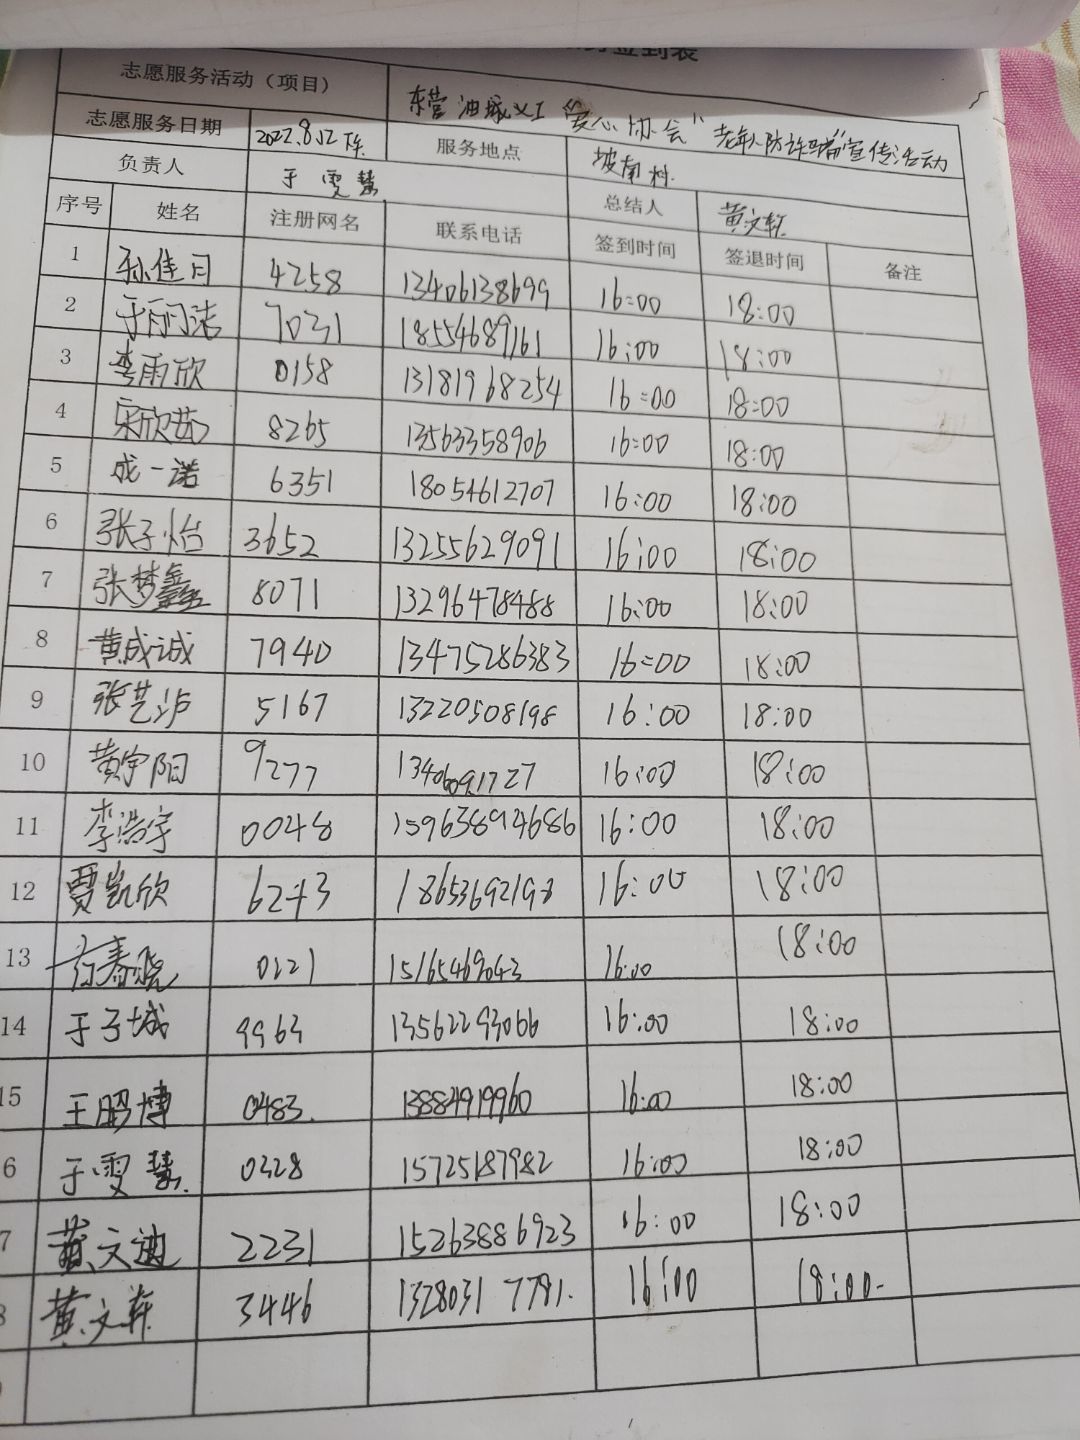 签到表
志愿服务活动（项目） 东营油城义工"爱心协会"老年人防诈骗宣传活动
志愿服务日期 2022.8.12 下午 服务地点 坡南村.
负责人 于雯慧 总结人 黄文轩
序号 姓名 注册网名 联系电话 签到时间 签退时间 备注
1 孙佳月 4258 13406138699 16:00 18:00
2 于丽洁 7031 18554689161 16:00 18:00
3 李雨欣 0158 13181968254 16:00 18:00
4 宋欣茹 8265 13563358906 16:00 18:00
5 成一诺 6351 18054612707 16:00 18:00
6 张子怡 3652 13255629091 16:00 18:00
7 张梦鑫 8071 13296478488 16:00 18:00
8 黄成诚 7940 13475286383 16:00 18:00
9 张艺泸 5167 13220508198 16:00 18:00
10 黄宇阳 9277 13406091727 16:00 18:00
11 李浩宇 0048 15963894686 16:00 18:00
12 贾凯欣 6243 18653692198 16:00 18:00
13 春晓 0121 15165469043 16:00 18:00
14 于子城 9963 13562293066 16:00 18:00
15 王鹏博 0483. 13884919960 16:00 18:00
6 于雯慧. 0328 15725187982 16:00 18:00
7 黄文迪 2231 15263886923 16:00 18:00
8 黄文轩 3446 13280317781. 16:00 18:00-